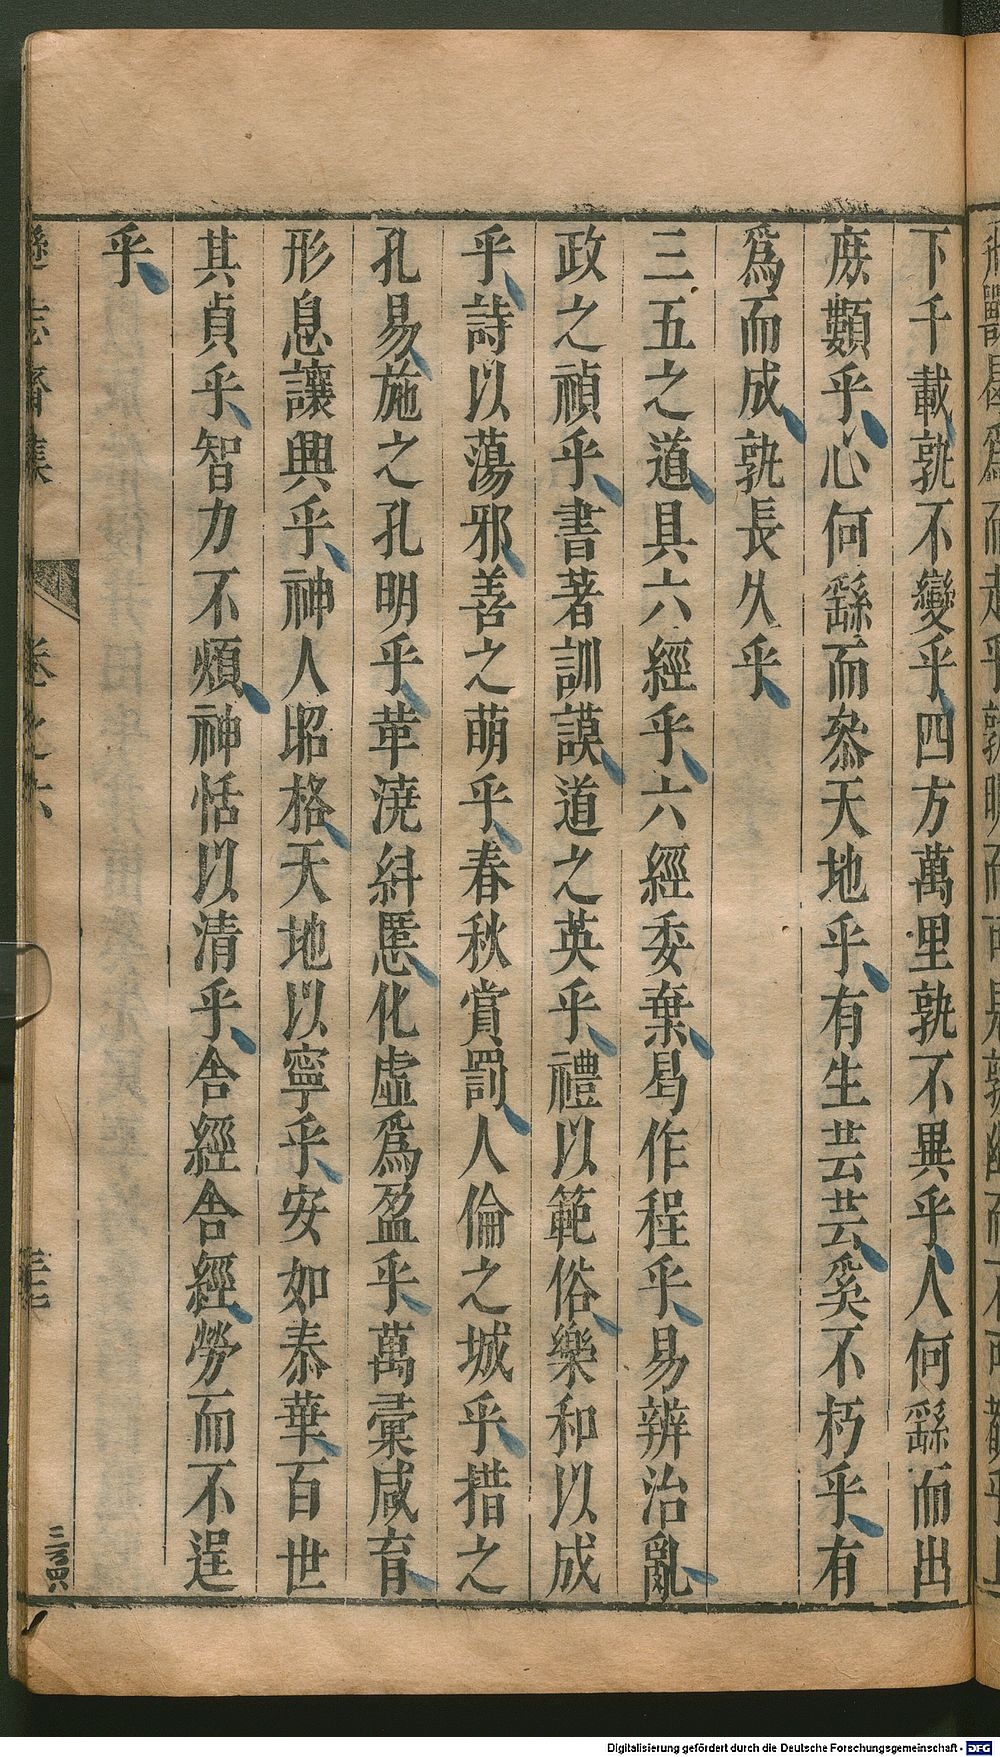 下千載孰不變乎四方萬里孰不異乎人何繇而出
庶類乎心何繇而叅天地乎有生芸芸奚不朽乎有
爲而成孰長久乎
三五之道具六經乎六經委棄曷作程乎易辨治亂
政之禎乎書著訓謨道之英乎禮以範俗樂和以成
乎詩以蕩邪善之萌乎春秋賞罰人倫之城乎措之
孔易施之孔明乎革澆糾慝化虛爲盈乎萬彙咸育
形息讓興乎神人昭格天地以寧乎安如泰華百世
其貞乎智力不煩神恬以清乎舍經舍經勞而不逞
乎
遜志齋集
卷之六
三百四
Digitalisierung gefördert durch die Deutsche Forschungsgemeinschaft - DFG